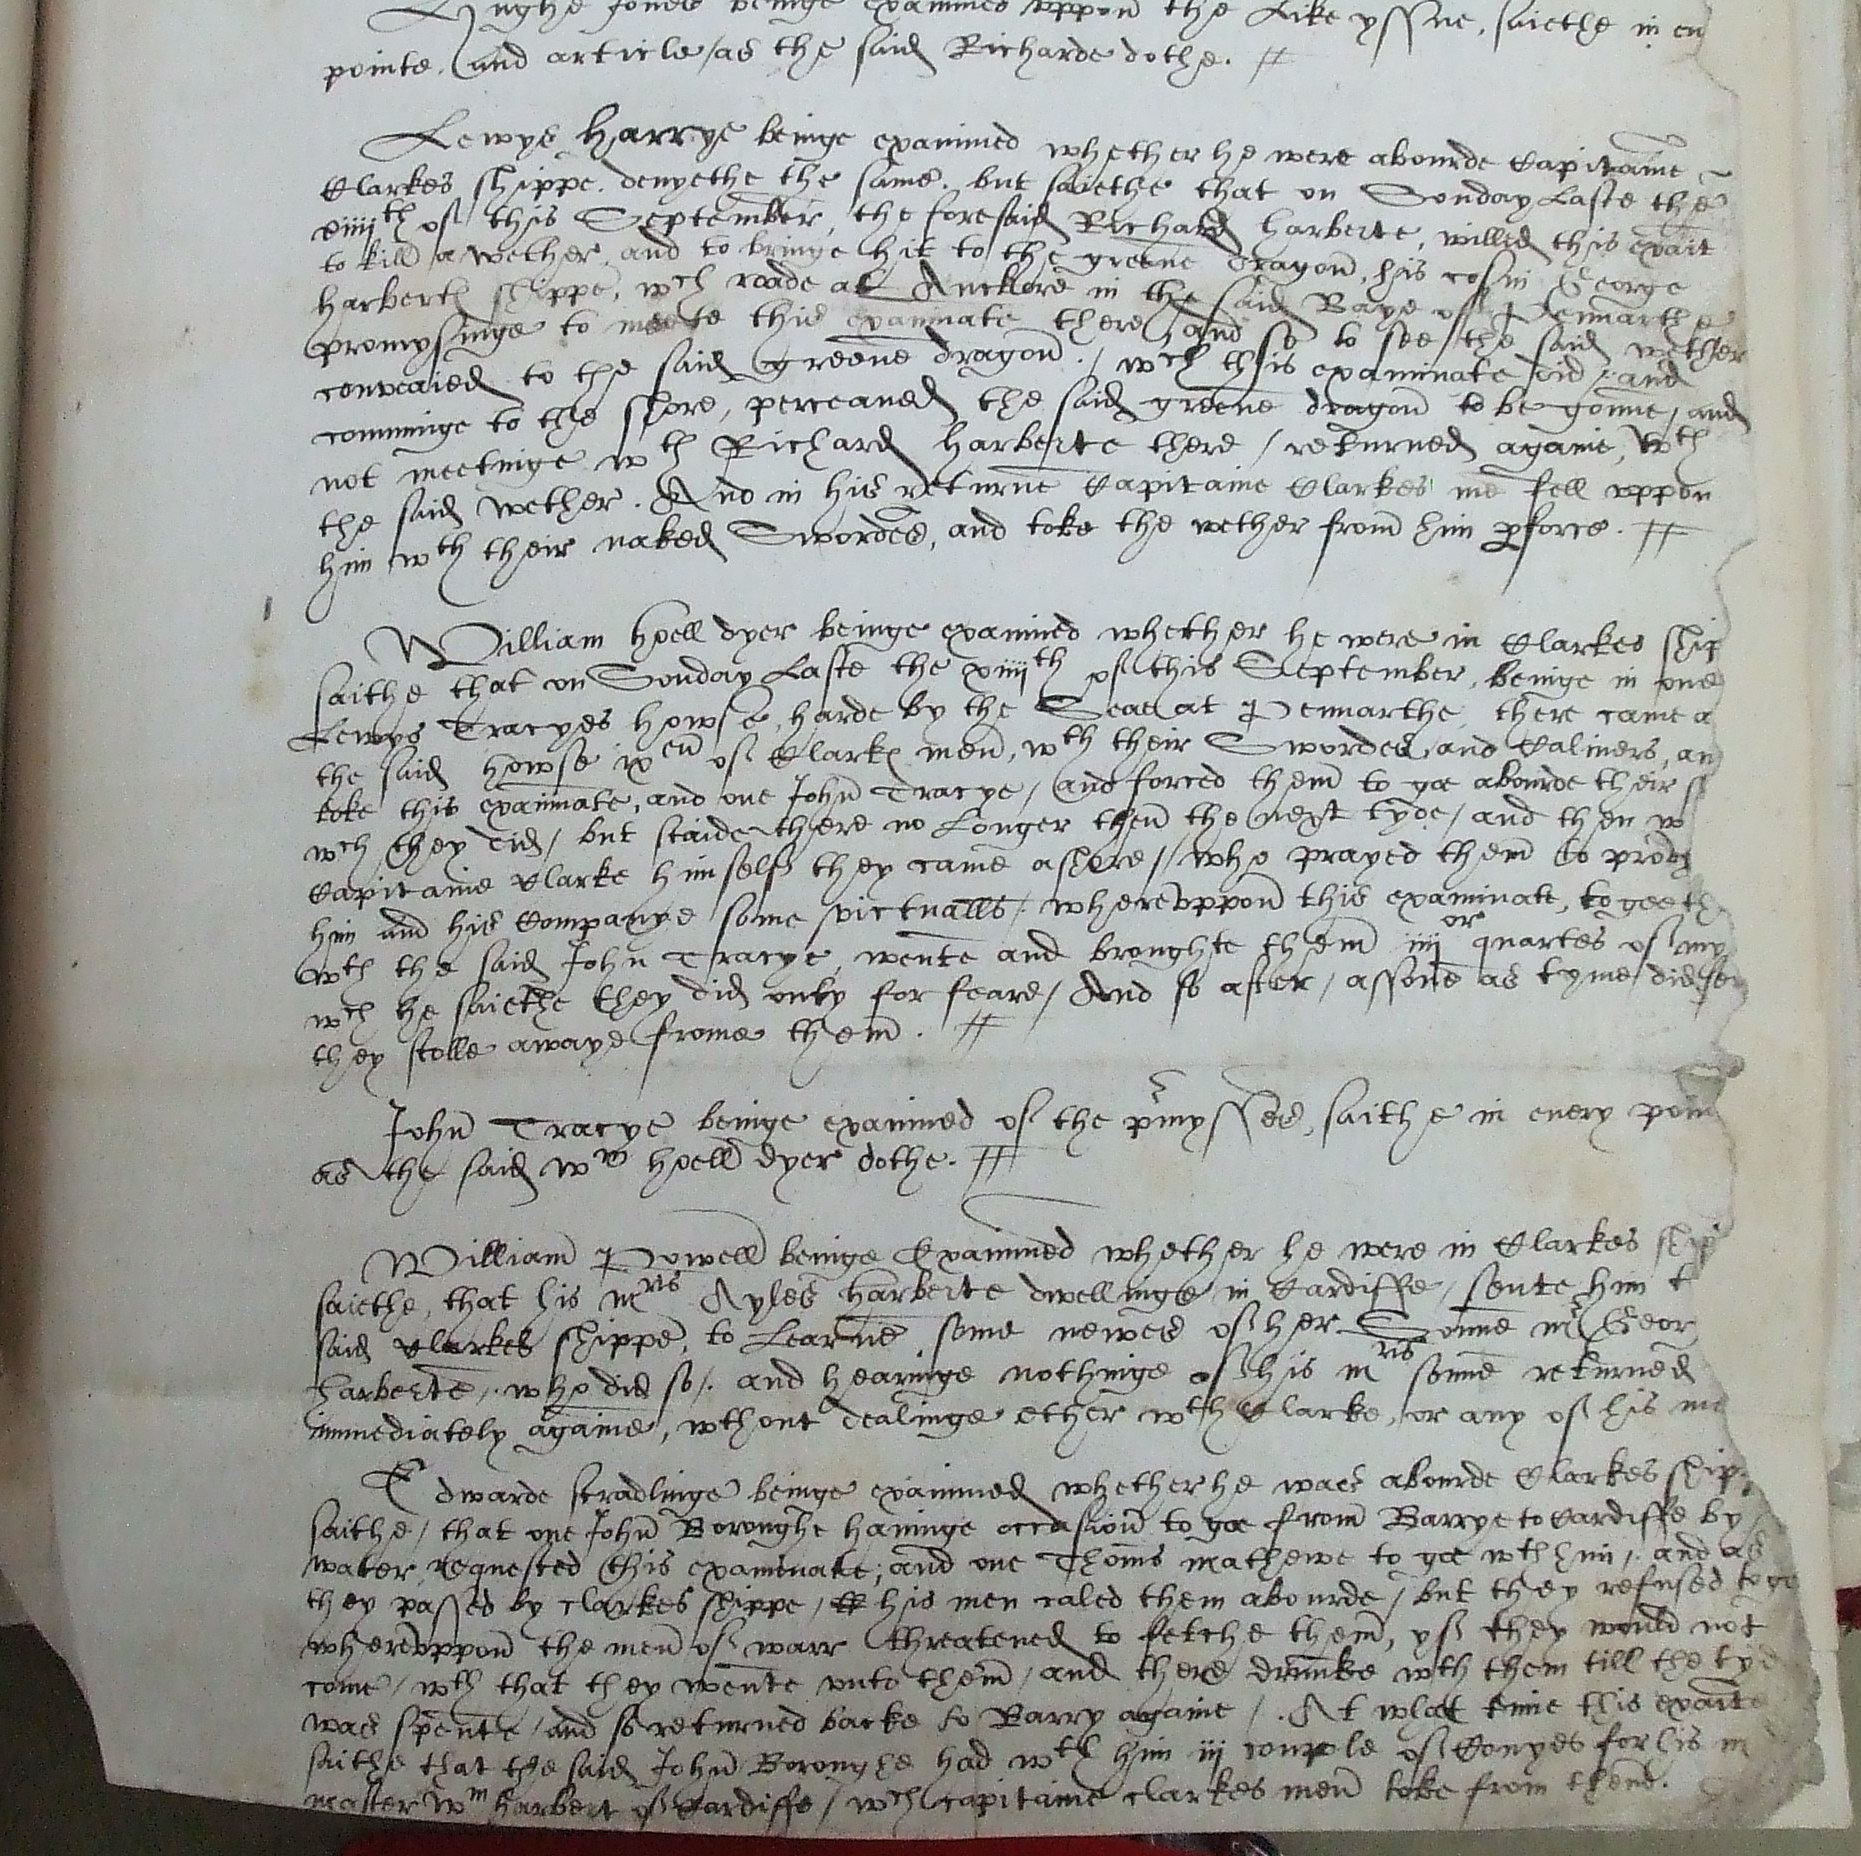 Hughe Jones beinge examined vppon the Like yssue, saiethe in eu
pointe, and article / as the said Richarde dothe. //
Lewys Harrye beinge examined whether he were abourde Capitaine
Clarkes shippe. denyethe the same. but saiethe that on Sonday Laste the
xiiijth of this September, the foresaid Richard harberte, willed this exait
to kill a wether, and to bringe hit to the greene dragon, his cosin George
harbertes shippe, wch roade at Anckore in the said Baye of Pennarthe
promysinge to meete this examinate there, and so to see the said wether
conveaied to the said greene dragon. / wch this examinate did / and
comminge to the shore, perceaued the said greene dragon to be gonne, and
not meetinge wth Richard harberte there / returned againe, wth
the said wether. And in his returne Capitaine Clarkes men fell vppon
him wth their naked Swordes, and toke the wether from him pforce. //
William hoell dyer beinge examined whether he were in Clarkes ship
saithe that on Sonday Laste the xiiijth of this September, beinge in one
Lewys Tracyes howse, harde by the Seae at Pennarthe, there came a
the said howse ixen of Clarkes men, wth their Swordes and Caliuers, an
toke this examinate, and one John Tracye, and forced them to goe abourde their s
wch they did, but staide there no Longer then the next tyde, and then w
Capitaine Clarke himself they came ashore / who prayed them to prouy
him and his Companye some victualls. wherevppon this examinate, togeth
wth the said John Tracye, wente and broughte them iiijor quartes of my
wch he saiethe they did only for feare / And so after / assone as tyme did ser
they stolle awaye frome them. //
John Tracye beinge examined of the prmysses, saithe in euery poin
as the said Wm hoell dyer dothe. //
William Powell beinge Examined whether he were in Clarkes ship
saiethe, that his mris Ayles harberte dwellinge in Cardiffe, sente him t
said Clarkes shippe, to Learne some newes of her Sonne mr Geor
harberte, who did so / and hearinge nothinge of his mris sonne returned
immediately againe, wthout dealinge ether wth Clarke, or any of his me
Edwarde Stradlinge beinge examined whether he waes abourde Clarkes ship
saithe / that one John Boroughe hauinge occasion to goe from Barrye to Cardiffe by
water, requested this examinate, and one Thoms mathewe to goe wth him, and as
they passed by Clarkes shippe, his men caled them abourde / but they refused to go
wherevppon the men of warr threatened to fetche them, yf they would not
come, wth that they wente vnto them, and there drunke wth them till the tyd
waes spente / and so returned backe to Barry againe /. At what time this exaite
saithe that the said John Boroughe had wth him iij couple of Conyes for his m
master Wm harbert of Cardiffe / wch capitaine clarkes men toke from theme.